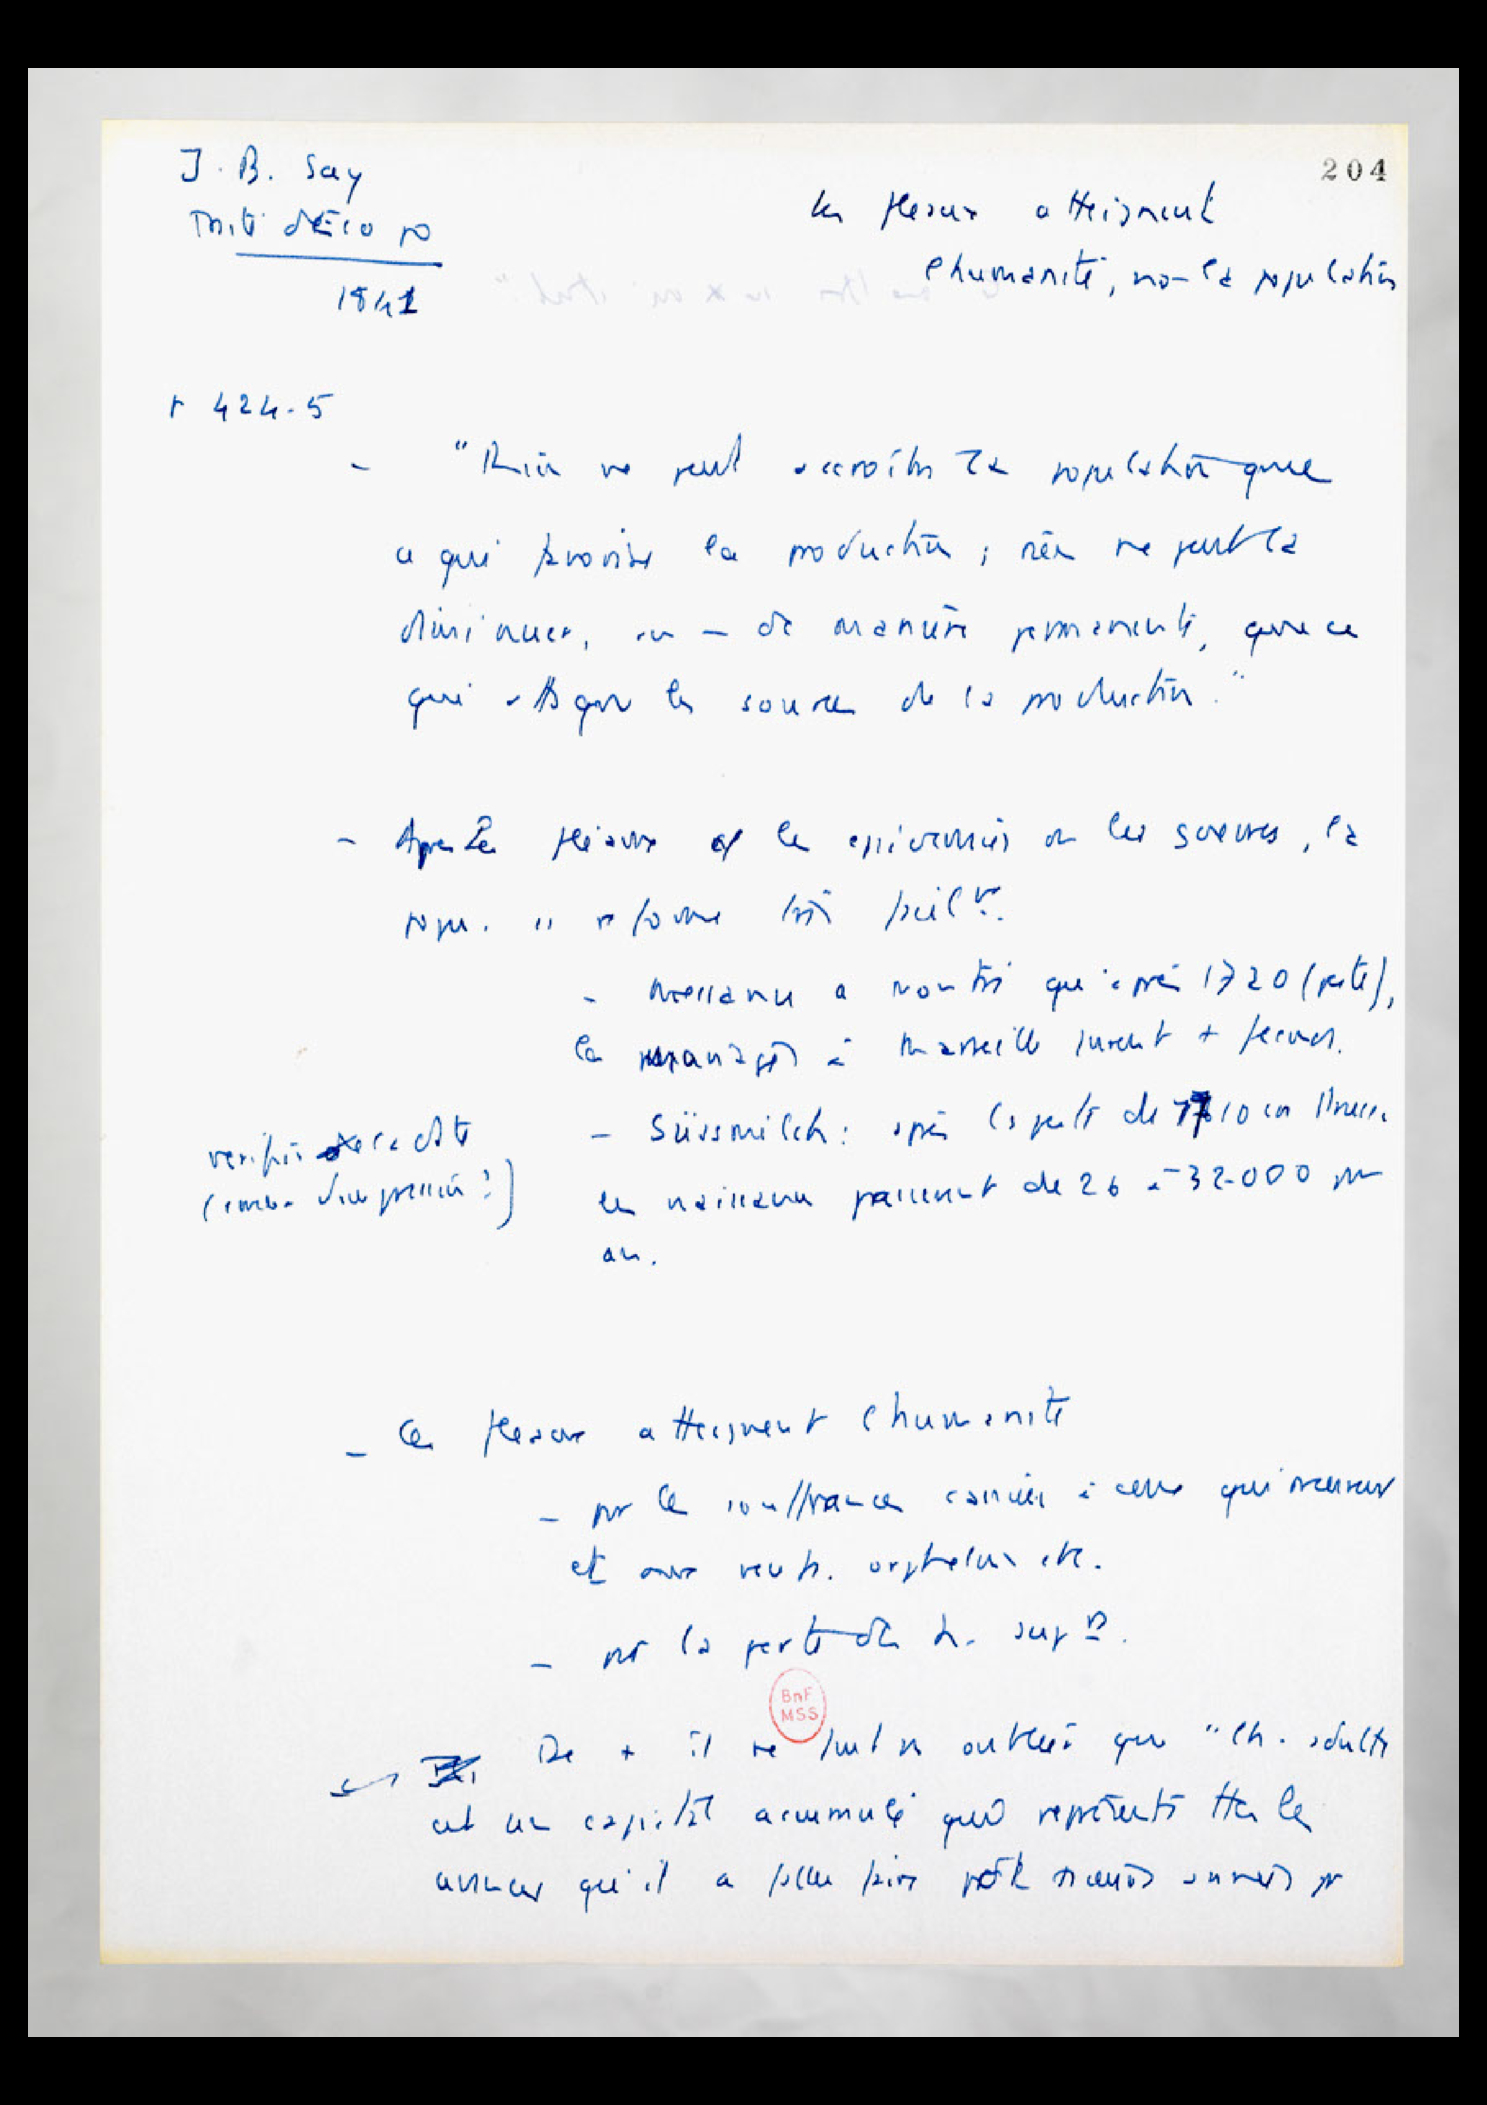 J. B. Say
Traité d'Éco po
1841
204
les fléaux atteignent
l'humanité, non la population
p 424-5
- "Rien ne peut accroître la population que
ce qui favorise la production ; rien ne peut la
diminuer, au - de manière permanente, que ce
qui attaque les sources de la production."
- Après les fléaux et les épidémies ou les guerres, la
popu. se reforme très facilt.
- Messance a montré qu'après 1720 (peste),
les mariages à Marseille furent + féconds.
- Süssmilch : après la peste de 1710 en Prusse
les naissances passèrent de 26 à 32.000 par
an.
vérifier la date
- Ces fléaux atteignent l'humanité
- par les souffrances causées à ceux qui meurent
et aux veufs. orphelins etc.
- par la perte des h. supr.
BnF
MSS
De + il ne faut pas oublier que "l'h. adulte
est un capital accumulé qui représente ttes les
avances qu'il a fallu faire pdt années pr